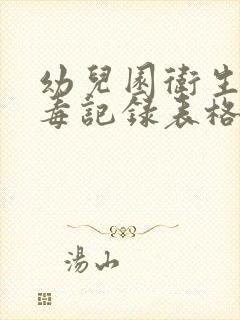 幼兒園衛生
毒記錄表格
湯山